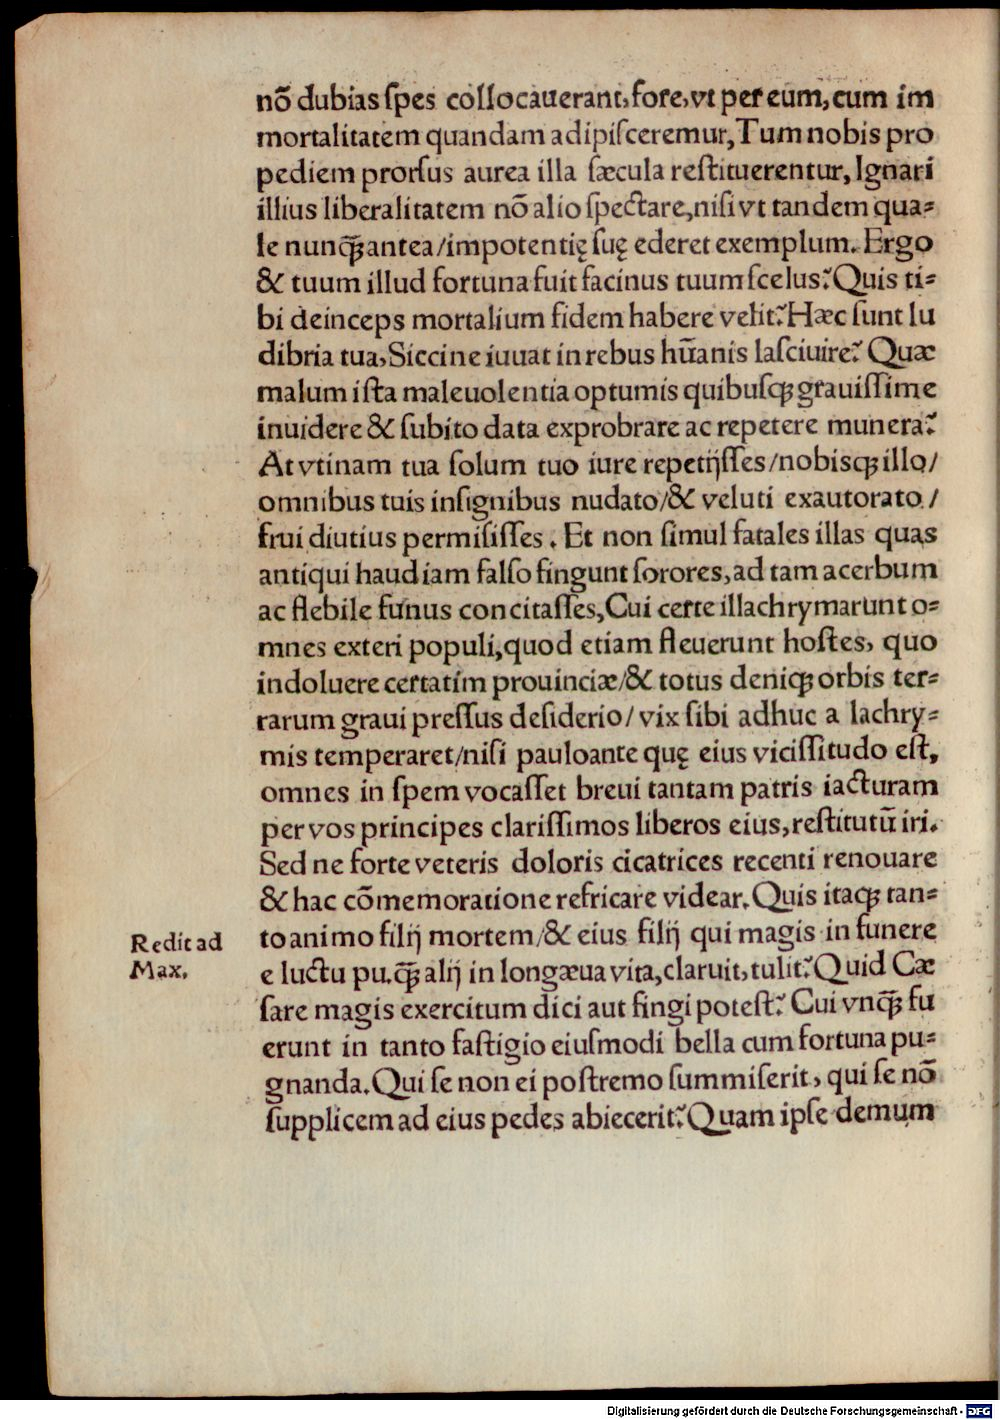 nō dubias ſpes collocauerant, fore, vt per eum, cum im
mortalitatem quandam adipiſceremur, Tum nobis pro
pediem prorſus aurea illa ſæcula reſtituerentur, Ignari
illius liberalitatem nō alio ſpectare, niſi vt tandem qua⸗
le nunqꝫ̃ antea/impotentię ſuę ederet exemplum. Ergo
& tuum illud fortuna fuit facinus tuum ſcelus? Quis ti⸗
bi deinceps mortalium fidem habere velit? Hæc ſunt lu
dibria tua, Siccine iuuat in rebus hūanis laſciuire? Quæ
malum iſta maleuolentia optumis quibuſqꝫ grauiſſime
inuidere & ſubito data exprobrare ac repetere munera?
At vtinam tua ſolum tuo iure repetijſſes/nobisqꝫ illo/
omnibus tuis inſignibus nudato/& veluti exautorato/
frui diutius permiſiſſes. Et non ſimul fatales illas quas
antiqui haud iam falſo fingunt ſorores, ad tam acerbum
ac flebile funus concitaſſes, Cui certe illachrymarunt o⸗
mnes exteri populi, quod etiam fleuerunt hoſtes, quo
indoluere certatim prouinciæ/& totus deniqꝫ orbis ter⸗
rarum graui preſſus deſiderio/vix ſibi adhuc a lachry⸗
mis temperaret/niſi pauloante quę eius viciſſitudo eſt,
omnes in ſpem vocaſſet breui tantam patris iacturam
per vos principes clariſſimos liberos eius, reſtitutū iri.
Sed ne forte veteris doloris cicatrices recenti renouare
& hac cōmemoratione refricare videar. Quis itaqꝫ tan⸗
to animo filij mortem/& eius filij qui magis in funere
e luctu pu. qꝫ̃ alij in longæua vita, claruit, tulit? Quid Cæ
ſare magis exercitum dici aut fingi poteſt? Cui vnqꝫ̃ fu
erunt in tanto faſtigio eiuſmodi bella cum fortuna pu⸗
gnanda. Qui ſe non ei poſtremo ſummiſerit, qui ſe nō
ſupplicem ad eius pedes abiecerit? Quam ipſe demum
Redit ad
Max.
Digitalisierung gefördert durch die Deutsche Forschungsgemeinschaft - DFG